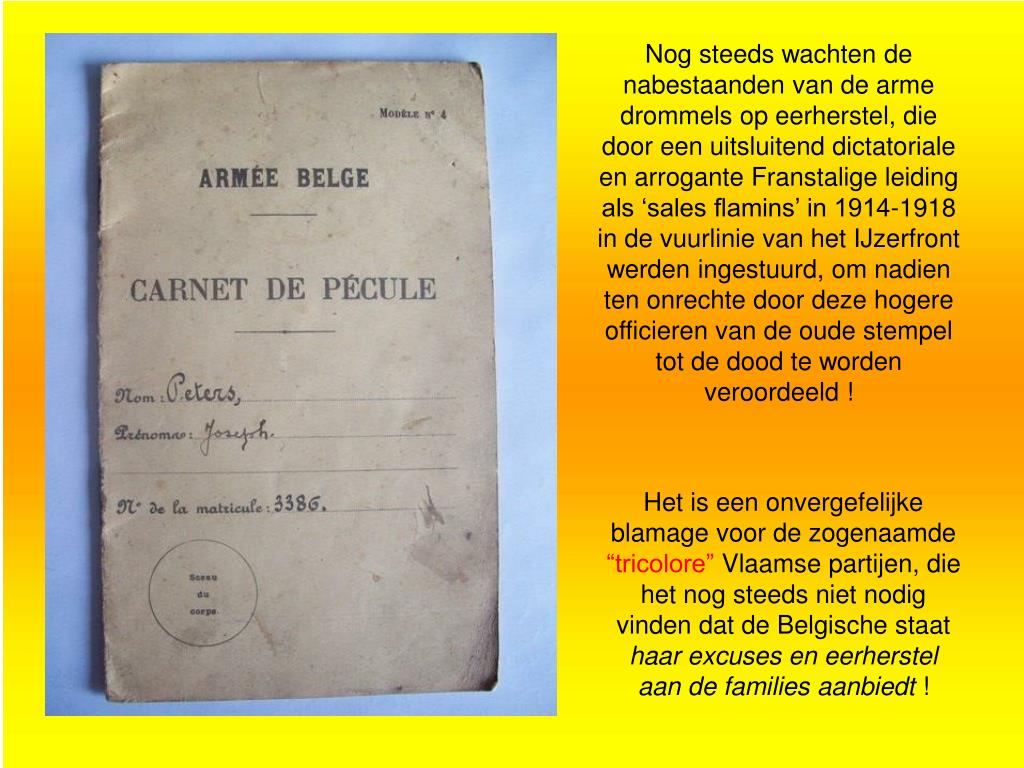 Modèle n° 4
ARMÉE BELGE
CARNET DE PÉCULE
Nom : Peters,
Prénoms : Joseph.
N° de la matricule : 3386.
Sceau
du
corps
Nog steeds wachten de
nabestaanden van de arme
drommels op eerherstel, die
door een uitsluitend dictatoriale
en arrogante Franstalige leiding
als ‘sales flamins’ in 1914-1918
in de vuurlinie van het IJzerfront
werden ingestuurd, om nadien
ten onrechte door deze hogere
officieren van de oude stempel
tot de dood te worden
veroordeeld !
Het is een onvergefelijke
blamage voor de zogenaamde
“tricolore” Vlaamse partijen, die
het nog steeds niet nodig
vinden dat de Belgische staat
haar excuses en eerherstel
aan de families aanbiedt !